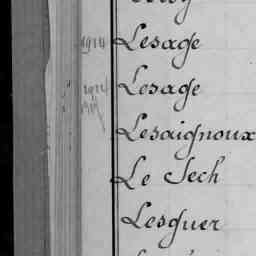 1914 Lesage
1914 Lesage
Lesaignoux
Le Sech
Lesquer